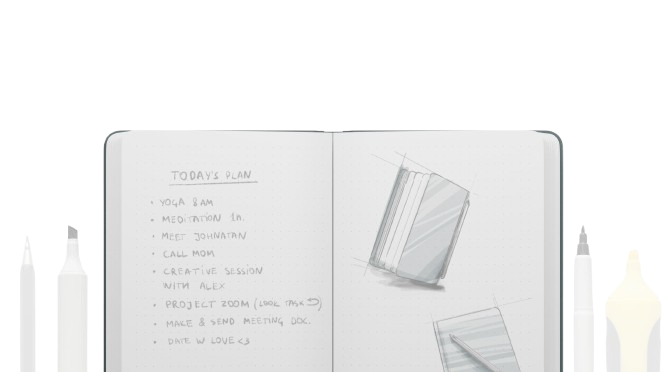 TODAY'S PLAN
• YOGA 8 AM
• MEDITATION
• MEET JOHNATAN
• CALL MOM
• CREATIVE SESSION
WITH ALEX
• PROJECT ZOOM ( TASK
• MAKE & SEND MEETING DOC.
• DATE W LOVE <3